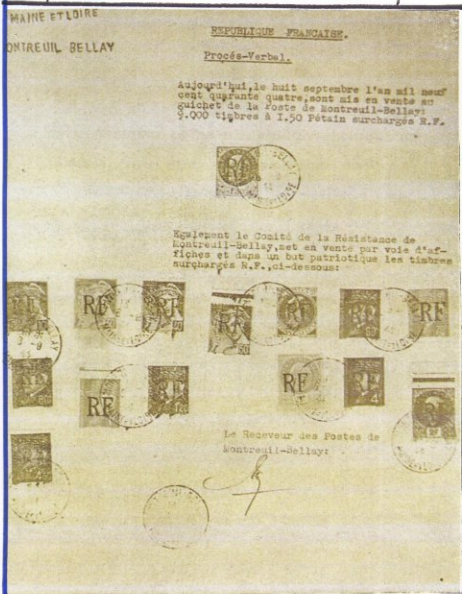 MAINE ET LOIRE
ONTREUIL BELLAY
REPUBLIQUE FRANCAISE.
Procés-Verbal.
Aujourd'hui,le huit septembre l'an mil neuf
cent quarante quatre,sont mis en vente au
guichet de la Poste de Montreuil-Bellay:
9.000 timbres à I.50 Pétain surchargés R.F.
RF
Egalement le Comité de la Résistance de
Montreuil-Bellay,met en vente par voie d'af-
fiches et dans un but patriotique les timbres
surchargés R.F.,ci-lessous:
RF RF RF RF RF RF RF
RF RF RF RF RF RF
RF
Le Receveur des Postes de
Montreuil-Bellay: